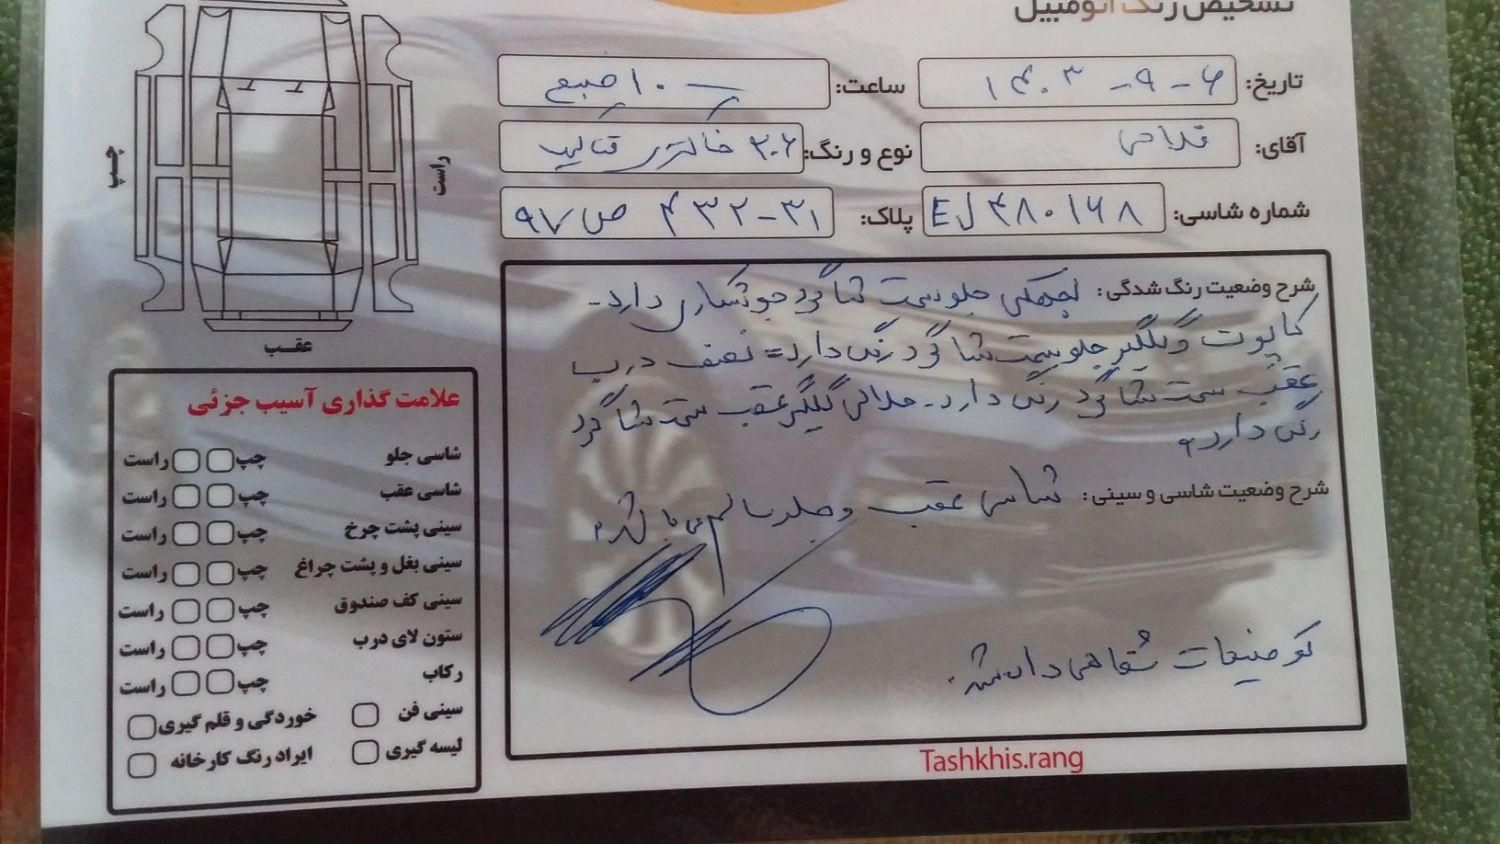 تشخیص رنگ اتومبیل
تاریخ: ۱۴۰۳-۹-۶
ساعت: ۱۰ صبح
آقای: فلاحی
نوع و رنگ: ۲۰۶ خاکستری متالیک
شماره شاسی: EJ ۴۸۰۱۶۸
پلاک: ۹۷ ص ۴۳۲-۳۱
چپ
راست
عقب
شرح وضعیت رنگ شدگی: جلو سمت شاگرد دارد-
کاپوت و گلگیر جلو سمت شاگرد رنگ دارد= نصف درب
عقب سمت شاگرد رنگ دارد- گلگیر عقب سمت شاگرد
رنگ دارد
شرح وضعیت شاسی و سینی: شاسی عقب و جلو سالم می باشد
توضیحات شفاهی داده شد.
Tashkhis.rang
علامت گذاری آسیب جزئی
شاسی جلو چپ راست
شاسی عقب چپ راست
سینی پشت چرخ چپ راست
سینی بغل و پشت چراغ چپ راست
سینی کف صندوق چپ راست
ستون لای درب چپ راست
رکاب چپ راست
سینی فن خوردگی و قلم گیری
لیسه گیری ایراد رنگ کارخانه